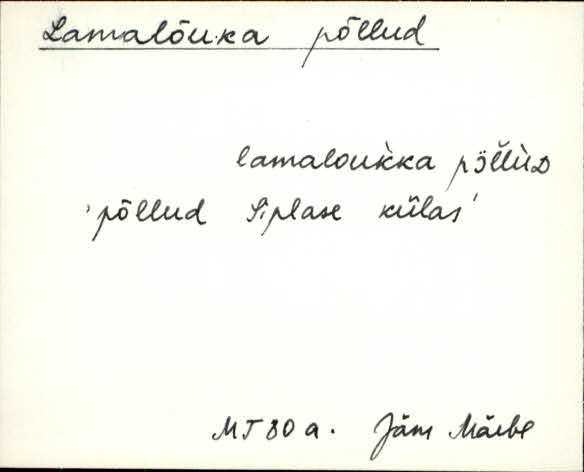 Lamalõuka põllud
lamaloukka
'põllud Siplase külas'
MT 80 a. Jäm